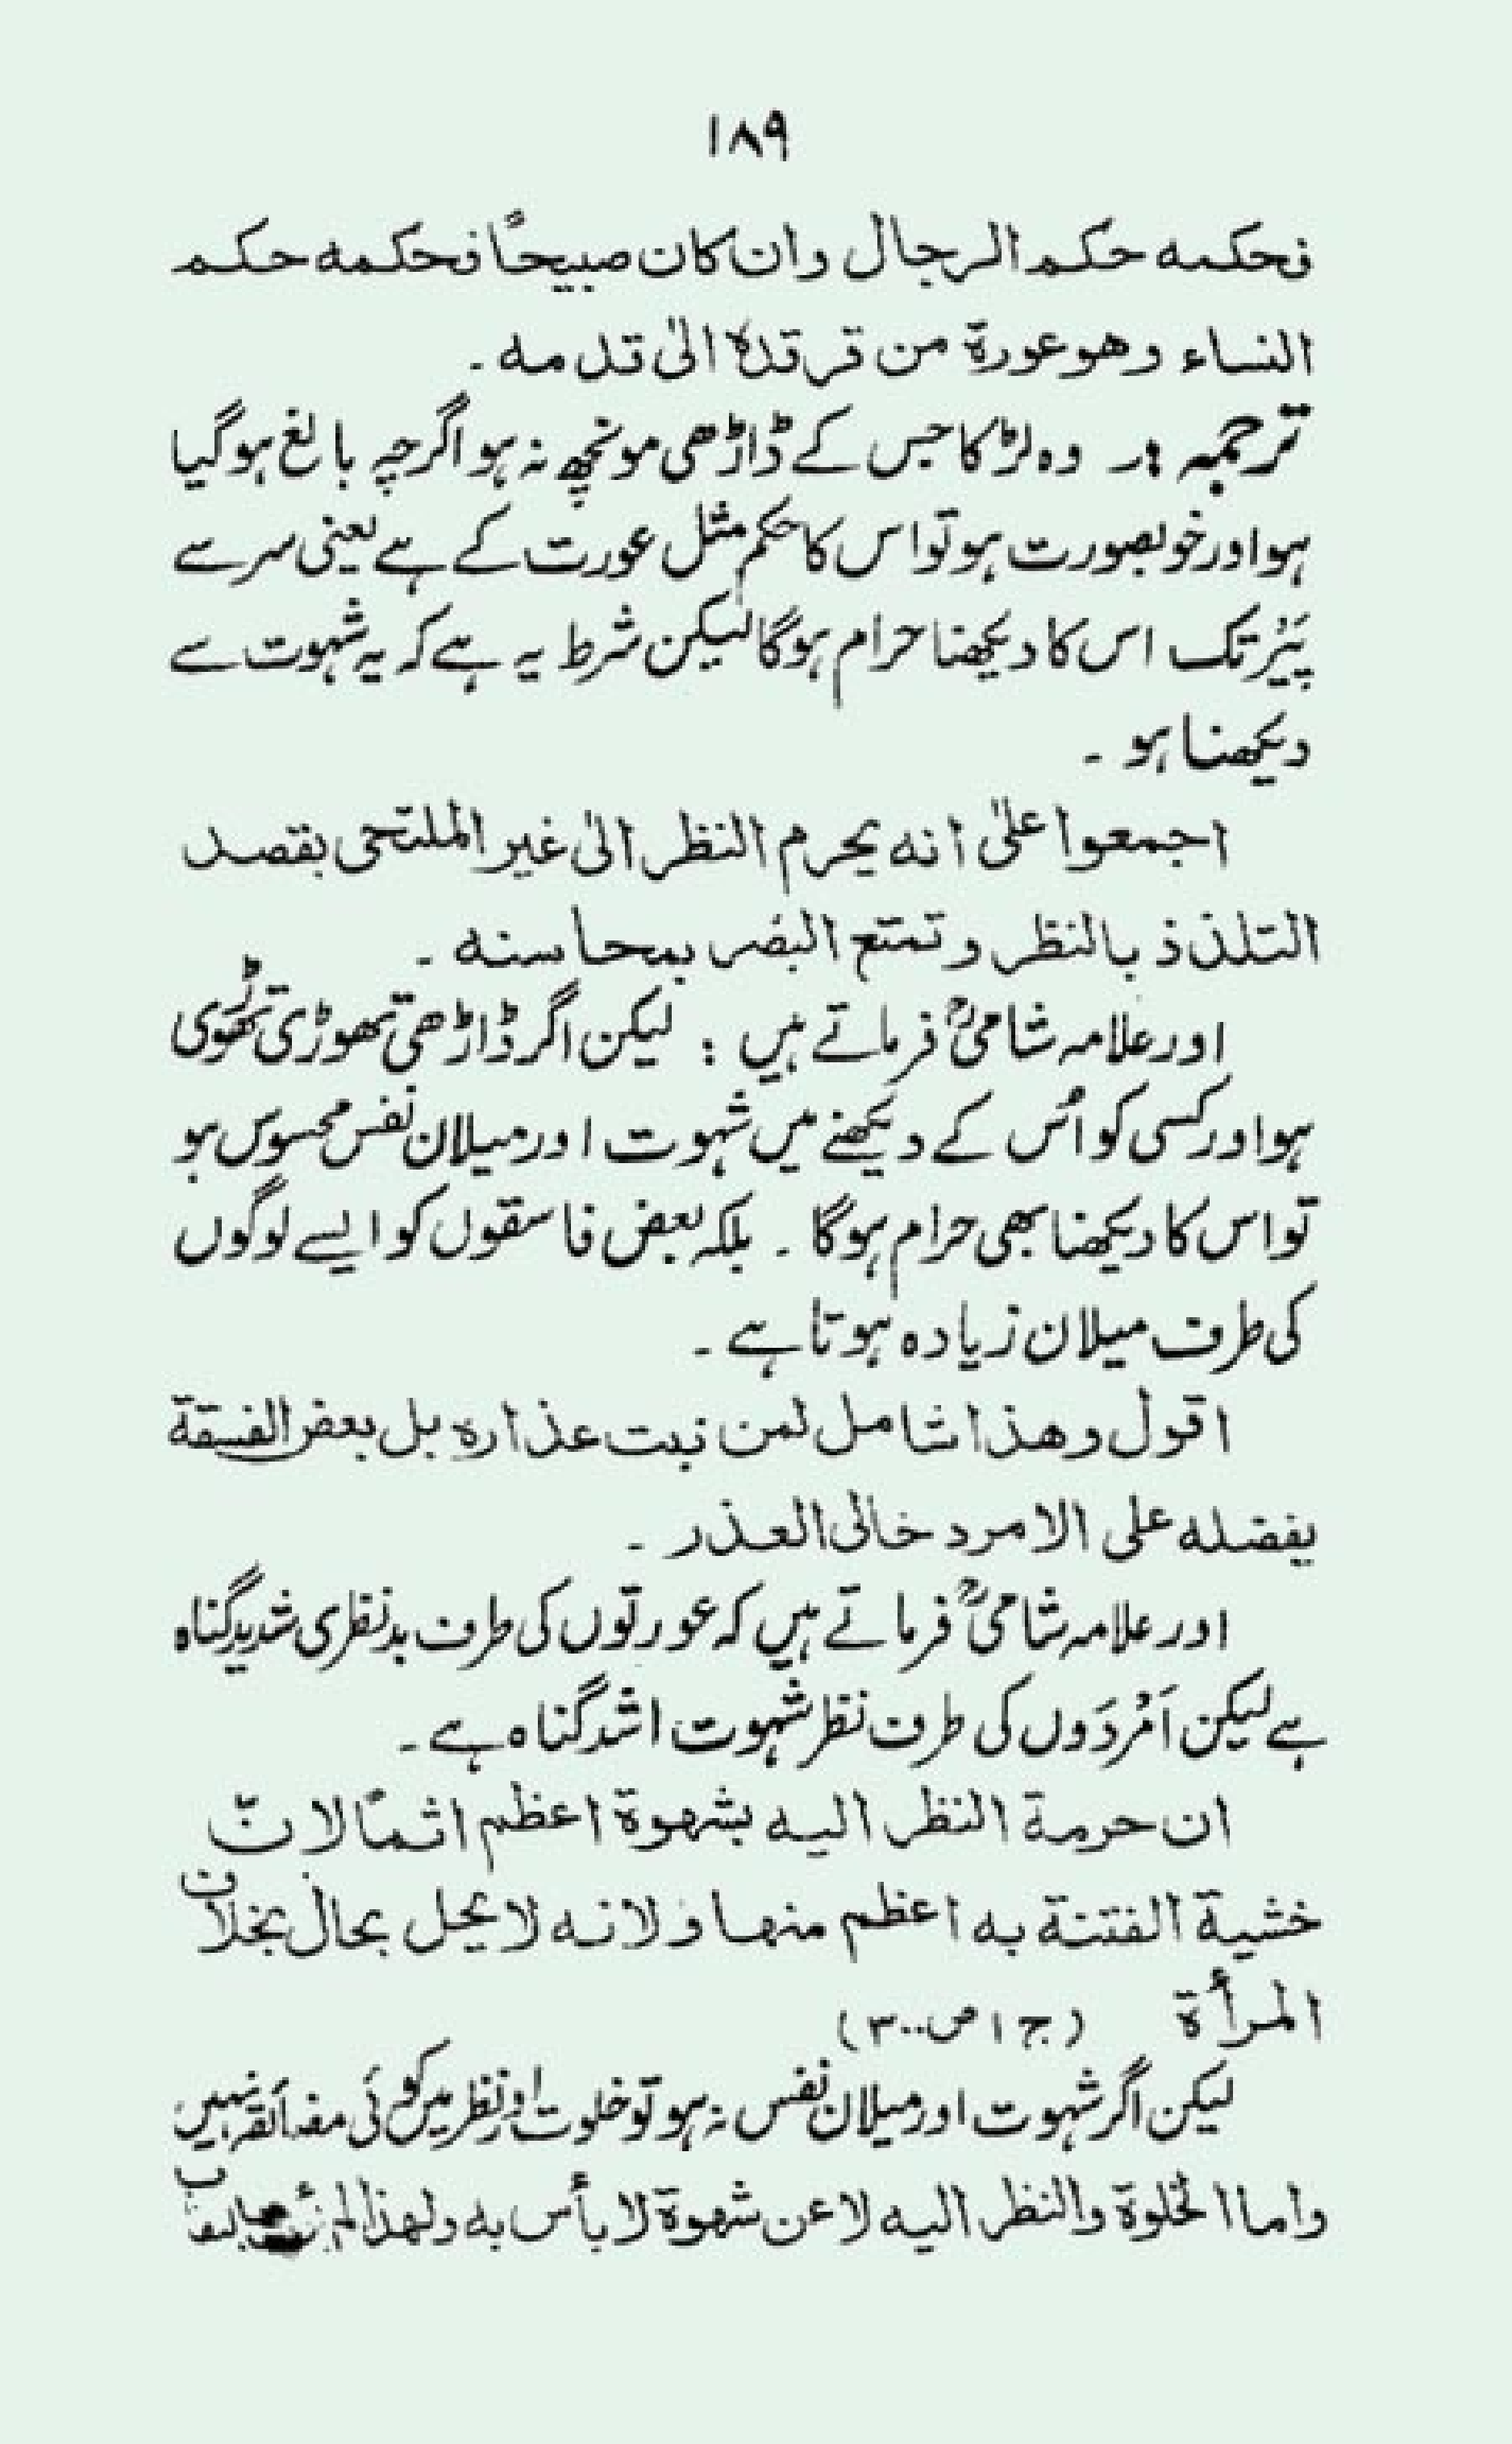 ۱۸۹
فحکمه حکم الرجال وان کان صبیحًا فحکمه حکم
النساء وهو عورة من قرقده الیٰ قدمه ۔
ترجمہ :۔ وہ لڑکا جس کے ڈاڑھی مونچھ نہ ہو اگرچہ بالغ ہوگیا
ہو اور خوبصورت ہو تو اس کا حکم مثل عورت کے ہے یعنی سر سے
پَیْر تک اس کا دیکھنا حرام ہوگا لیکن شرط یہ ہے کہ یہ شہوت سے
دیکھنا ہو ۔
اجمعوا علیٰ انه یحرم النظر الیٰ غیر الملتحی بقصد
التلذذ بالنظر و تمتع البضر بمحاسنه ۔
اور علامہ شامیؒ فرماتے ہیں : لیکن اگر ڈاڑھی تھوڑی تھوڑی
ہو اور کسی کو اُس کے دیکھنے میں شہوت اور میلان نفس محسوس ہو
تو اس کا دیکھنا بھی حرام ہوگا ۔ بلکہ بعض فاسقوں کو ایسے لوگوں
کی طرف میلان زیادہ ہوتا ہے ۔
اقول وهذا شامل لمن نبت عذاره بل بعض الفسقة
یفضله علی الامرد خالی العذر ۔
اور علامہ شامیؒ فرماتے ہیں کہ عورتوں کی طرف بدنظری شدید گناہ
ہے لیکن اَمْرَدوں کی طرف نظر شہوت اشد گناہ ہے ۔
ان حرمة النظر الیه بشهوة اعظم اثمًا لانّ
خشیة الفتنة به اعظم منها ولانه لا یحل بحال بخلاف
المرأة (ج ۱ ص ۳۰۰)
لیکن اگر شہوت اور میلان نفس نہ ہو تو خلوت اور نظر میں کوئی مضائقہ نہیں
واما الخلوة والنظر الیه لا عن شهوة لا بأس به ولهذا لم